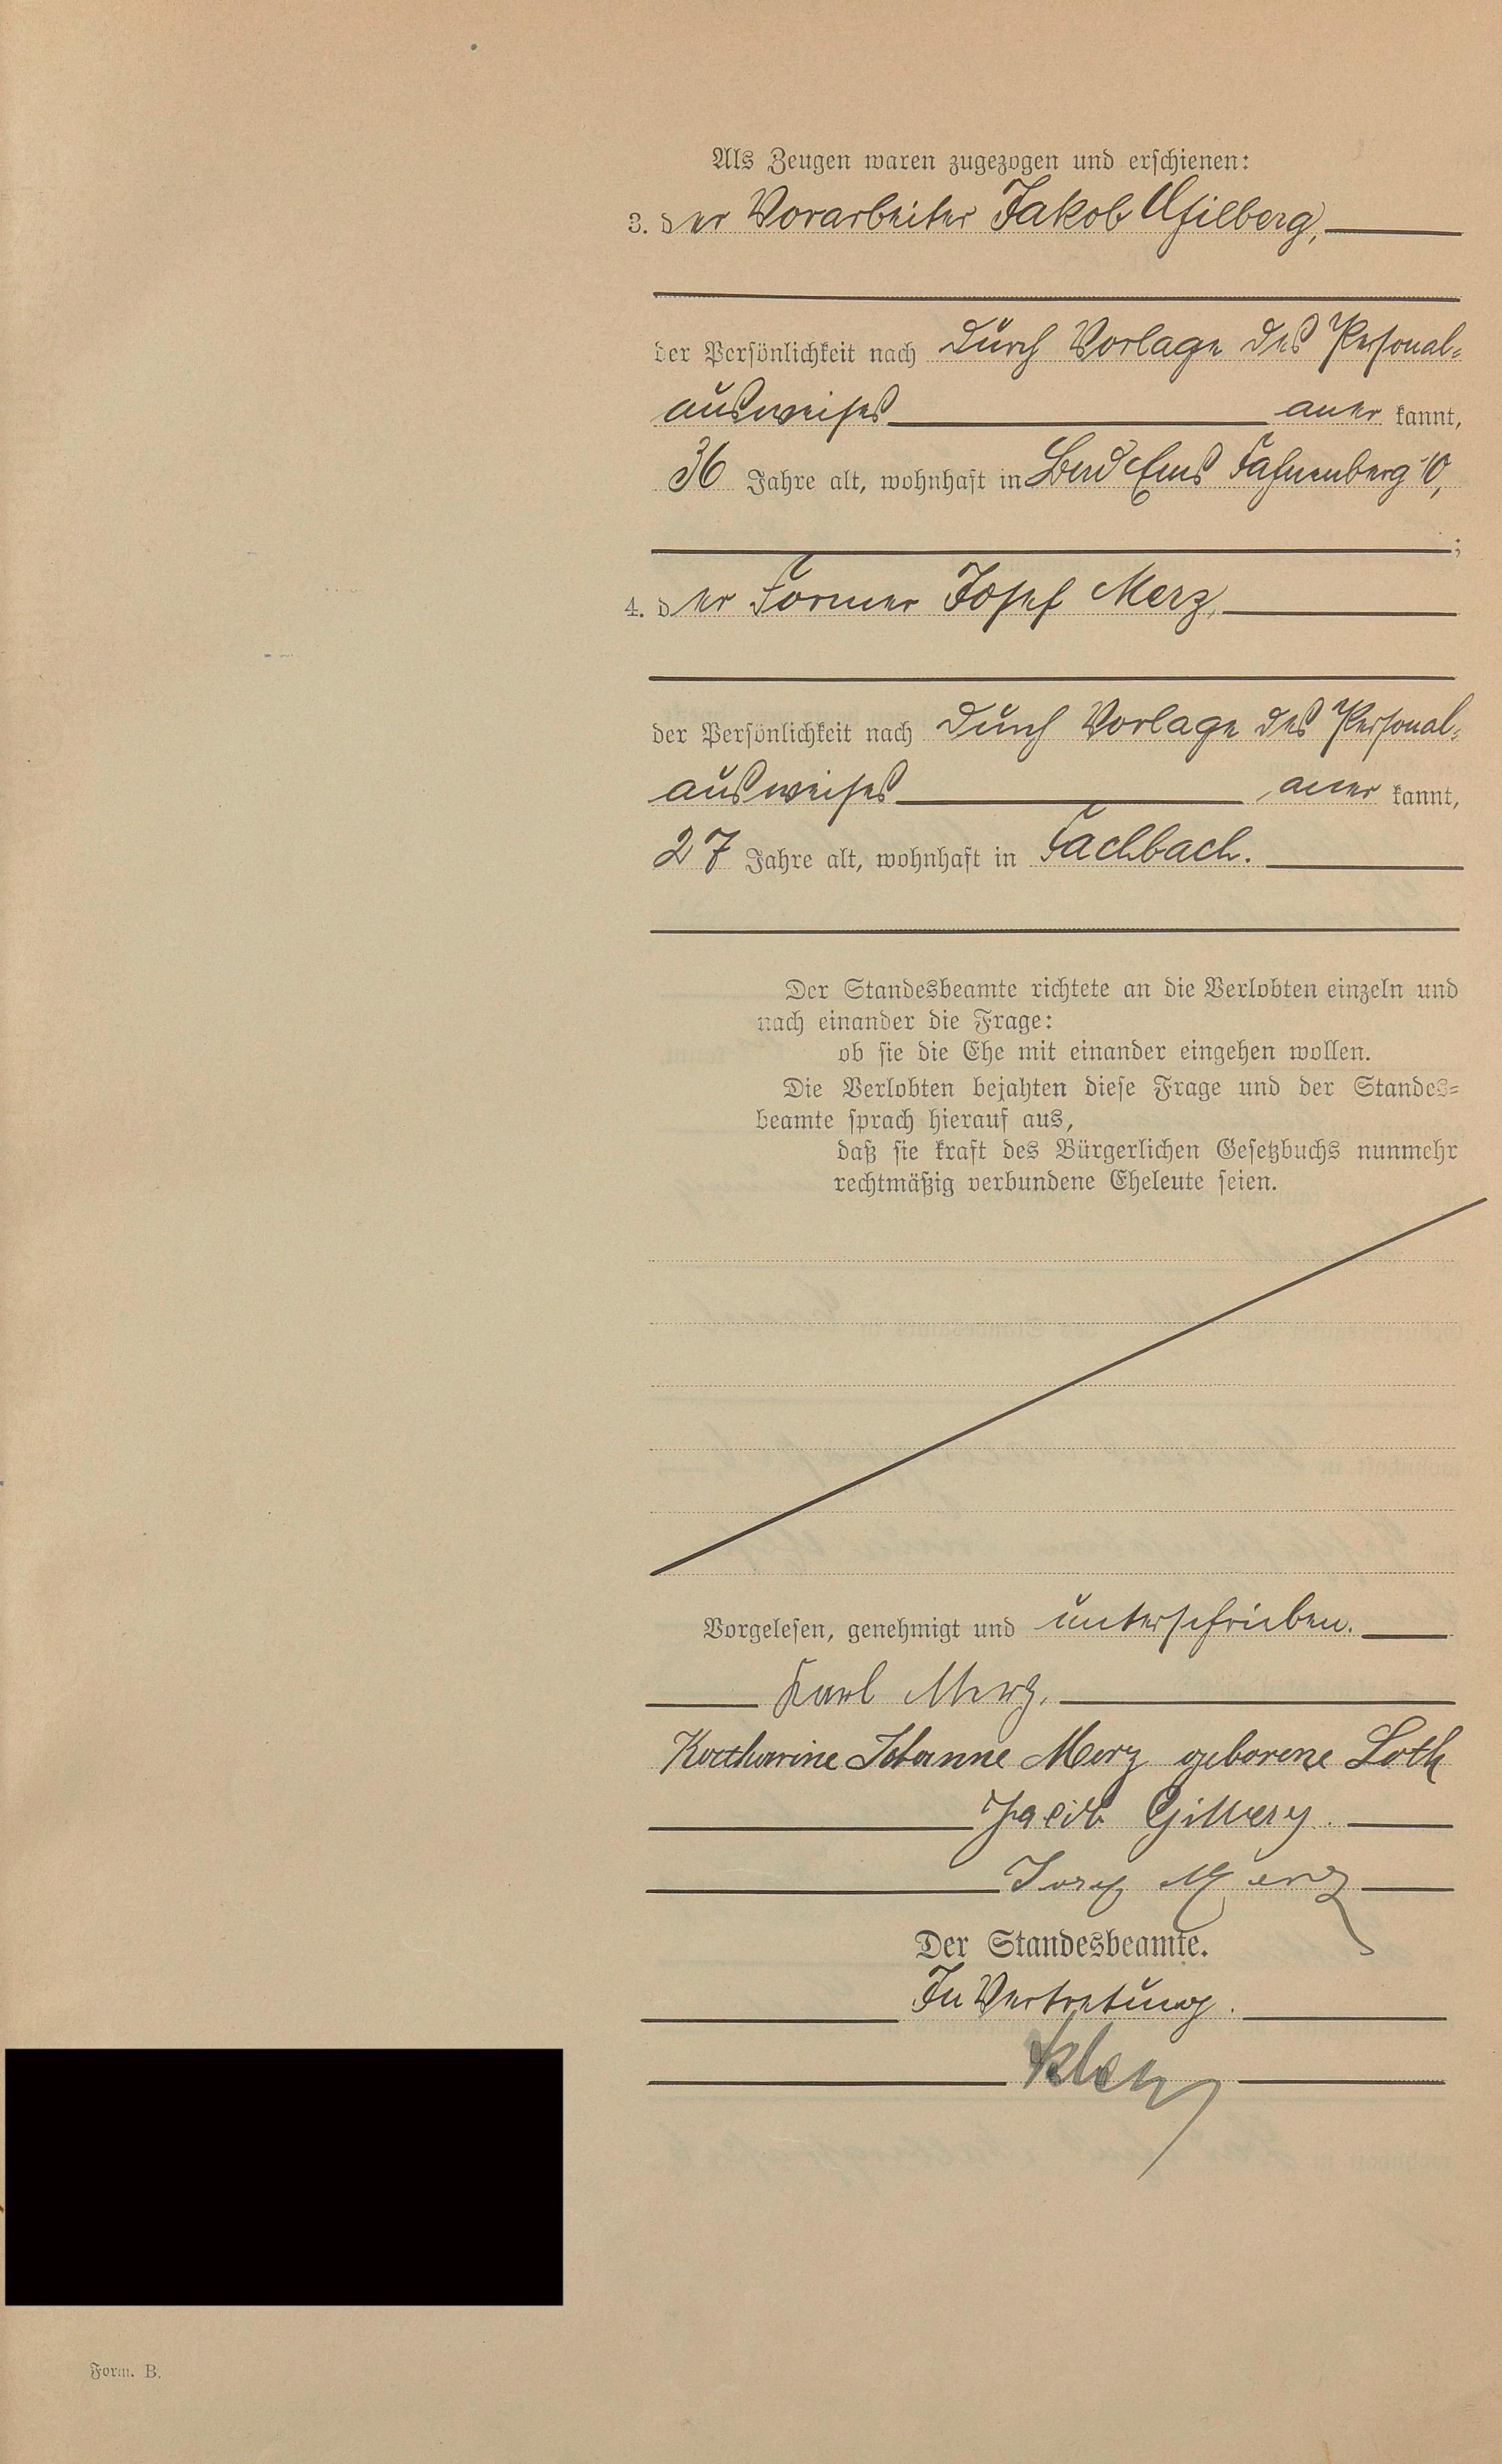 Als Zeugen waren zugezogen und erschienen:
3. der Vorarbeiter Jakob
der Persönlichkeit nach durch Vorlage des Personal-
ausweises anerkannt,
36 Jahre alt, wohnhaft in Bad Ems Fahnenberg 10,
;
4. der Former Josef Merz,
der Persönlichkeit nach durch Vorlage des Personal-
ausweises anerkannt,
27 Jahre alt, wohnhaft in Fachbach.
Der Standesbeamte richtete an die Verlobten einzeln und
nach einander die Frage:
ob sie die Ehe mit einander eingehen wollen.
Die Verlobten bejahten diese Frage und der Standes-
beamte sprach hierauf aus,
daß sie kraft des Bürgerlichen Gesetzbuchs nunmehr
rechtmäßig verbundene Eheleute seien.
Vorgelesen, genehmigt und unterschrieben.
Karl Merz.
Katharine Johanne Merz geborene Loth
Josef Merz
Der Standesbeamte.
In Vertretung.
Form. B.